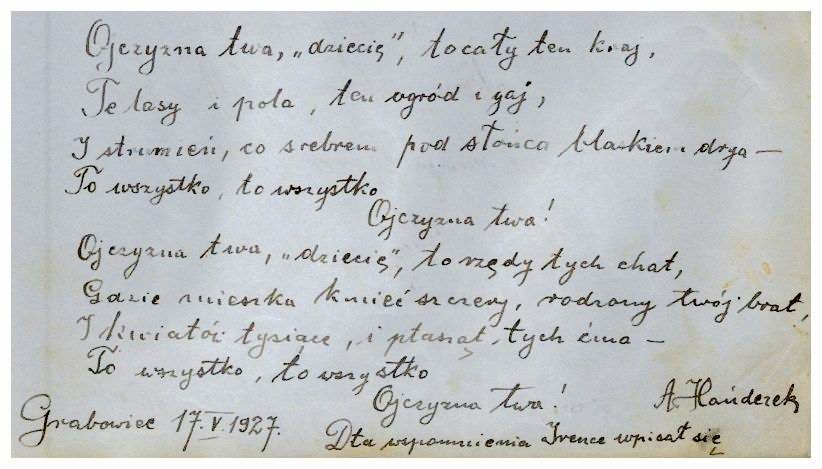 Ojczyzna twa, „dziecię”, to cały ten kraj,
Te lasy i pola, ten ogród i gaj,
I strumień, co srebrem pod słońca blaskiem drga —
To wszystko, to wszystko
Ojczyzna twa!
Ojczyzna twa, „dziecię”, to rzędy tych chat,
Gdzie mieszka kmieć szczery, rodzony twój brat,
I kwiatów tysiące, i ptasząt, tych ćma —
To wszystko, to wszystko
Ojczyzna twa!
A. Hańderek
Grabowiec 17.V.1927.
Dla wspomnienia Irence wpisał się